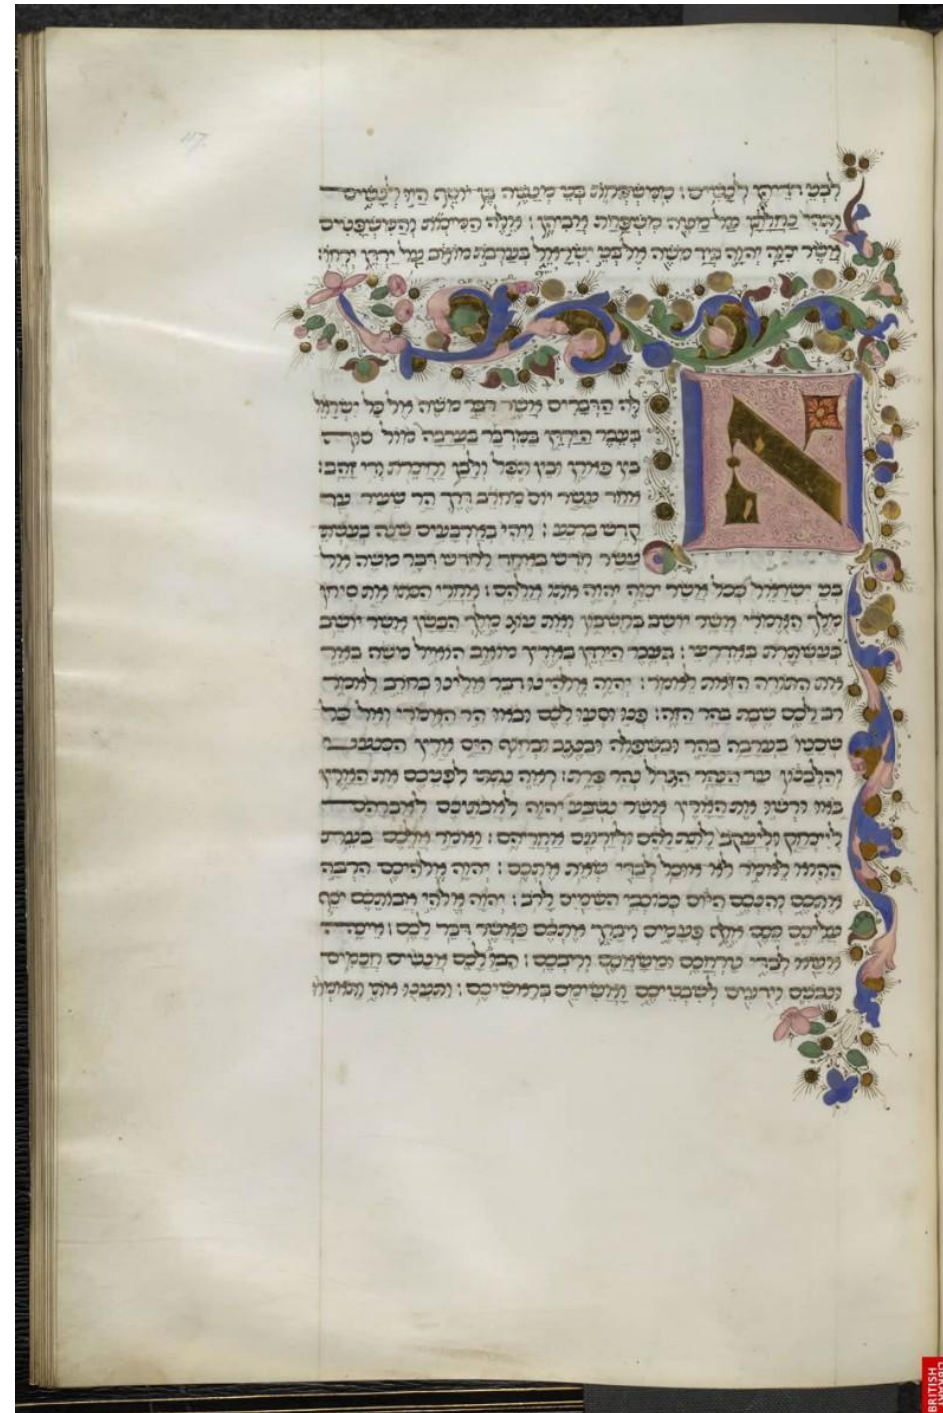 לבני דדיהן לנשים: ממשפחת בני מנשה בן יוסף היו לנשים
ותהי נחלתן על מטה משפחת אביהן: אלה המצות והמשפטים
אשר צוה יהוה ביד משה אל בני ישראל בערבת מואב על ירדן ירחו:
א
לה הדברים אשר דבר משה אל כל ישראל
בעבר הירדן במדבר בערבה מול סוף
בין פארן ובין תפל ולבן וחצרת ודי זהב:
אחד עשר יום מחרב דרך הר שעיר עד
קדש ברנע: ויהי בארבעים שנה בעשתי
עשר חדש באחד לחדש דבר משה אל
בני ישראל ככל אשר צוה יהוה אתו אלהם: אחרי הכתו את סיחן
מלך האמרי אשר יושב בחשבון ואת עוג מלך הבשן אשר יושב
בעשתרת באדרעי: בעבר הירדן בארץ מואב הואיל משה באר
את התורה הזאת לאמר: יהוה אלהינו דבר אלינו בחרב לאמר
רב לכם שבת בהר הזה: פנו וסעו לכם ובאו הר האמרי ואל כל
שכניו בערבה בהר ובשפלה ובנגב ובחוף הים ארץ הכנעני
והלבנון עד הנהר הגדל נהר פרת: ראה נתתי לפניכם את הארץ
באו ורשו את הארץ אשר נשבע יהוה לאבתיכם לאברהם
ליצחק וליעקב לתת להם ולזרעם אחריהם: ואמר אלכם בעת
ההוא לאמר לא אוכל לבדי שאת אתכם: יהוה אלהיכם הרבה
אתכם והנכם היום ככוכבי השמים לרב: יהוה אלהי אבותכם יסף
עליכם ככם אלף פעמים ויברך אתכם כאשר דבר לכם: איכה
אשא לבדי טרחכם ומשאכם וריבכם: הבו לכם אנשים חכמים
ונבנים וידעים לשבטיכם ואשימם בראשיכם: ותענו אתי ותאמרו
BRITISH